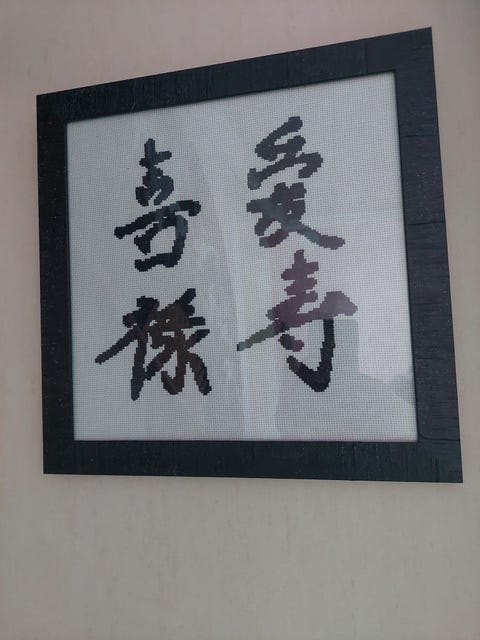 爱寿
喜禄